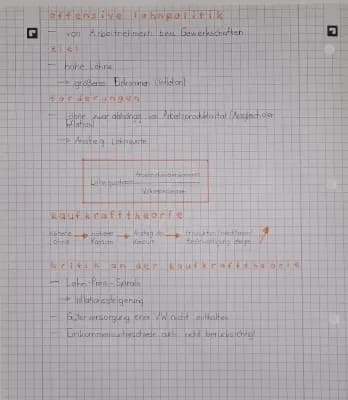 offensive lohnpolitik
- von Arbeitnehmern bzw. Gewerkschaften
ziel
- hohe Löhne
→ größeres Einkommen (Inflation)
forderungen
- Löhne zwar abhängig von Arbeitsproduktivität (Ausgleich über
Inflation)
→ Anstieg Lohnquote
Lohnquote =
Volkseinkommen
kaufkrafttheorie
höhere → höherer → Anstieg der → Produktion/Investitionen/
Löhne Konsum Beschäftigung steigen
kritik an der kaufkrafttheorie
- Lohn-Preis-Spirale
→ Inflationssteigerung
- Güterversorgung einer VW nicht enthalten
- Einkommensunterschiede nicht berücksichtigt